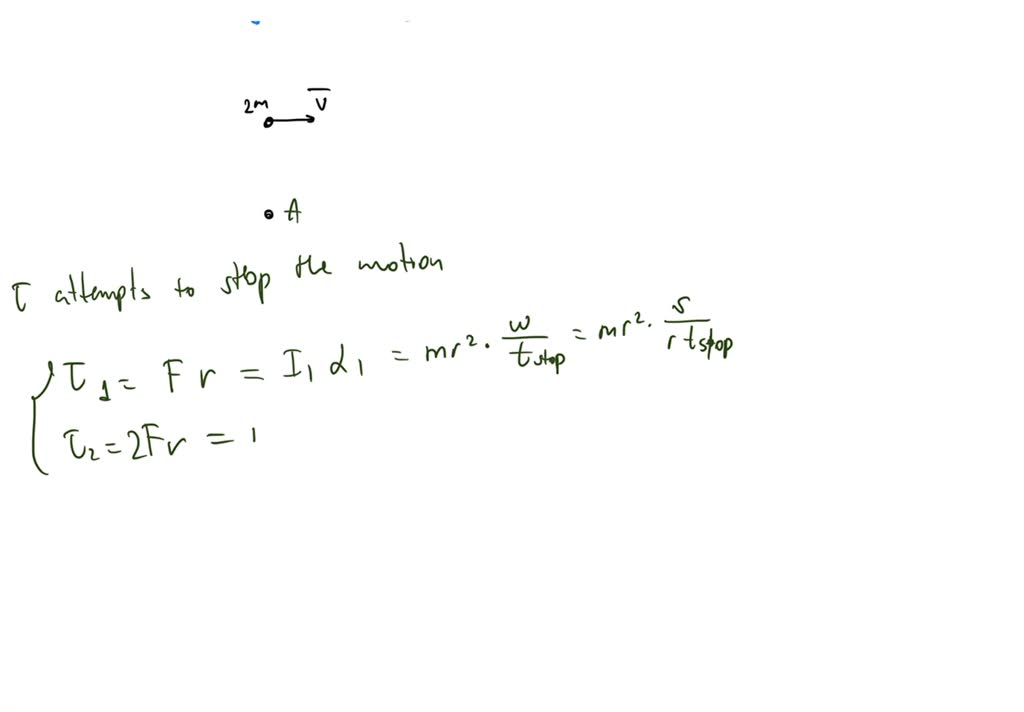 2m v̅
A
τ attempts to stop the motion
τ₁ = Fr = I₁ α₁ = mr² · ω/t stop = mr² · v/(r t stop)
τ₂ = 2Fr = 1